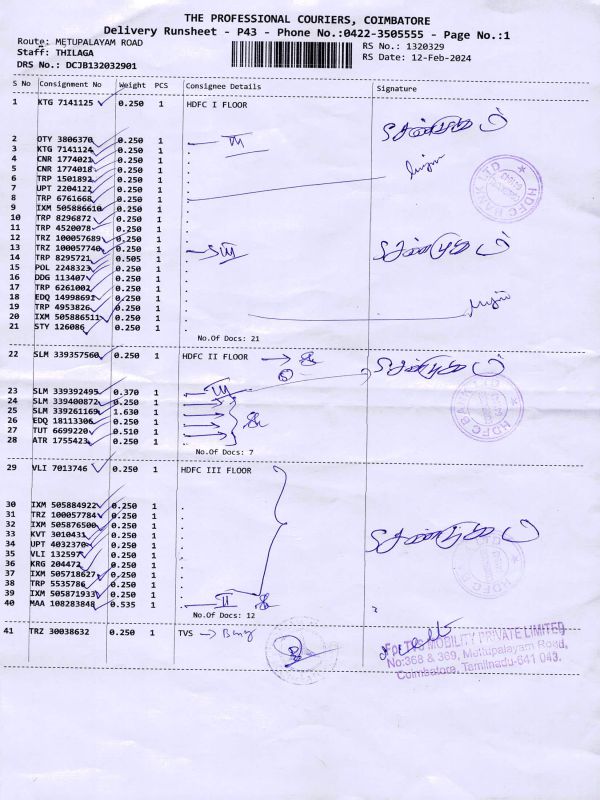 THE PROFESSIONAL COURIERS, COIMBATORE
Delivery Runsheet - P43 - Phone No.:0422-3505555 - Page No.:1
Route: METUPALAYAM ROAD
RS No.: 1320329
Staff: THILAGA
RS Date: 12-Feb-2024
DRS No.: DCJB132032901
S No Consignment No Weight PCS Consignee Details Signature
1 KTG 7141125 0.250 1 HDFC I FLOOR
2 OTY 3806370 0.250 1 . III
3 KTG 7141124 0.250 1 .
4 CNR 1774021 0.250 1 .
5 CNR 1774018 0.250 1 .
6 TRP 1501892 0.250 1 .
7 UPT 2204122 0.250 1 .
8 TRP 6761668 0.250 1 .
9 IXM 505886610 0.250 1 .
10 TRP 8296872 0.250 1 .
11 TRP 4520078 0.250 1 .
12 TRZ 100057689 0.250 1 .
13 TRZ 100057740 0.250 1 . III
14 TRP 8295721 0.505 1 .
15 POL 2248323 0.250 1 .
16 DDG 113407 0.250 1 .
17 TRP 6261002 0.250 1 .
18 EDQ 14998691 0.250 1 .
19 TRP 4953826 0.250 1 .
20 IXM 505886511 0.250 1 .
21 STY 126086 0.250 1 .
No.Of Docs: 21
HDFC BANK LTD
22 SLM 339357560 0.250 1 HDFC II FLOOR
23 SLM 339392495 0.370 1 . III
24 SLM 339400872 0.250 1 .
25 SLM 339261169 1.630 1 .
26 EDQ 18113306 0.250 1 .
27 TUT 6699220 0.510 1 .
28 ATR 1755423 0.250 1 .
No.Of Docs: 7
HDFC BANK LTD
29 VLI 7013746 0.250 1 HDFC III FLOOR
30 IXM 505884922 0.250 1 .
31 TRZ 100057784 0.250 1 .
32 IXM 505876500 0.250 1 .
33 KVT 3010431 0.250 1 .
34 UPT 4032370 0.250 1 .
35 VLI 132597 0.250 1 .
36 KRG 204472 0.250 1 .
37 IXM 505718627 0.250 1 .
38 TRP 5535786 0.250 1 .
39 IXM 505871933 0.250 1 .
40 MAA 108283848 0.535 1 . II
No.Of Docs: 12
41 TRZ 30038632 0.250 1 TVS
For TVS MOBILITY PRIVATE LIMITED
No:368 & 369, Mettupalayam Road,
Coimbatore, Tamilnadu-641 043.